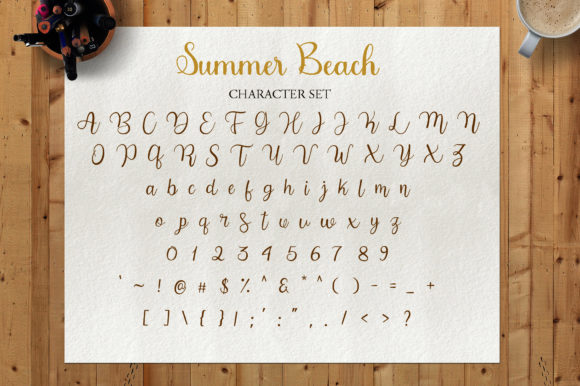 Summer Beach
CHARACTER SET
A B C D E F G H I J K L M N
O P Q R S T U V W X Y X Z
a b c d e f g h i j k l m n
o p q r s t u v w x y z
0 1 2 3 4 5 6 7 8 9
` ~ ! @ # $ % ^ & * ^ ( ) - = _ +
[ ] \ { } | ; ' : " , . / < > ?